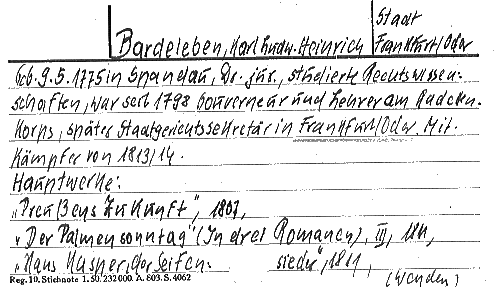 Stadt
Bardeleben, Karl Ludw. Heinrich Frankfurt/Oder
Geb. 9.5.1775 in Spandau, Dr. jur., studierte Rechtswissen-
schaften, war seit 1798 Gouverneur und Lehrer am Kadetten-
Korps, später Stadtgerichtssekretär in Frankfurt/Oder. Mit-
kämpfer von 1813/14.
Hauptwerke:
„Preußens Zukunft", 1807,
„Der Palmensonntag" (In drei Romanen), III,
„Hans Kasper, der Seifen- sieder", 1811,
Reg. 10. Stichnote 1. 50. 232000. A. 803. S. 4062 (Wenden)